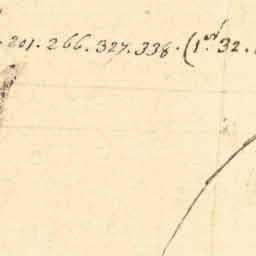 . 201. 266. 327. 338. (1. 32.